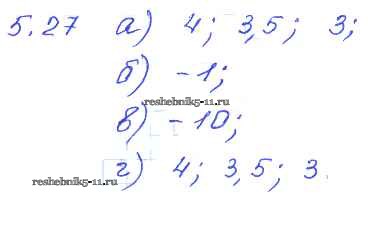 5.27 а) 4; 3,5; 3;
б) -1;
reshebnik5-11.ru
в) -10;
г) 4; 3,5; 3.
reshebnik5-11.ru